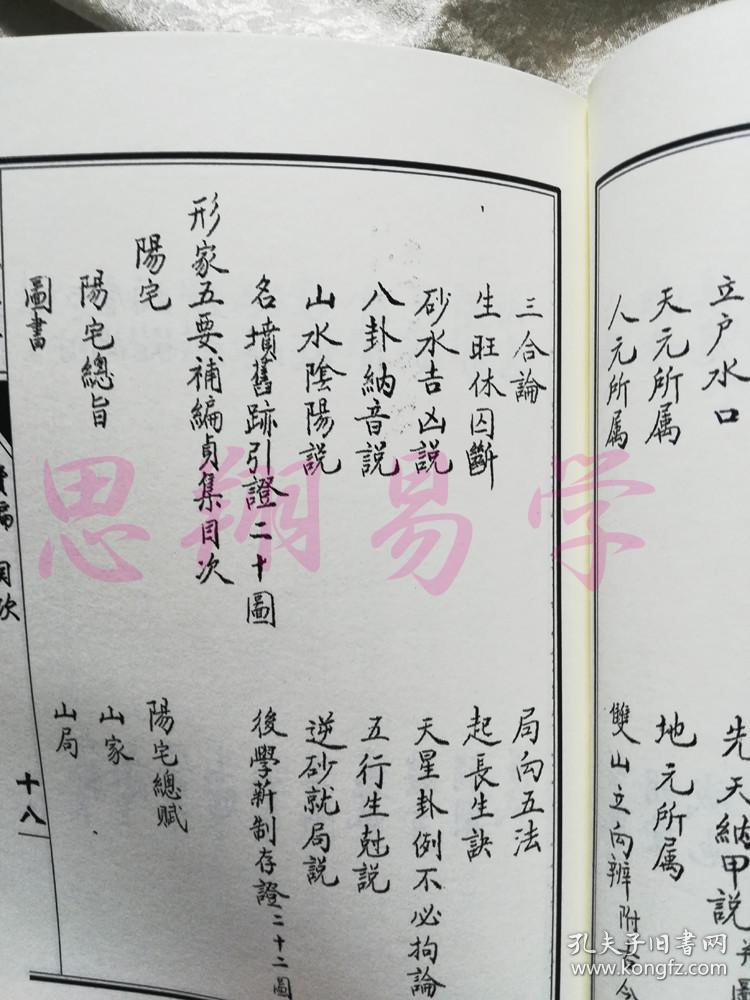 立户水口
先天納甲説
天元所属
地元所属
人元所属
雙山立向辨附
三合論
局向五法
生旺休囚斷
起長生訣
砂水吉凶説
天星卦例不必拘論
八卦納音説
五行生尅説
山水陰陽説
逆砂就局説
名墳舊跡引證二十圖
後學薪制存證二十二圖
形家五要補編貞集目次
陽宅
陽宅總賦
陽宅總旨
山家
圖書
山局
目次
十八
思翔易学
孔夫子旧书网
www.kongfz.com